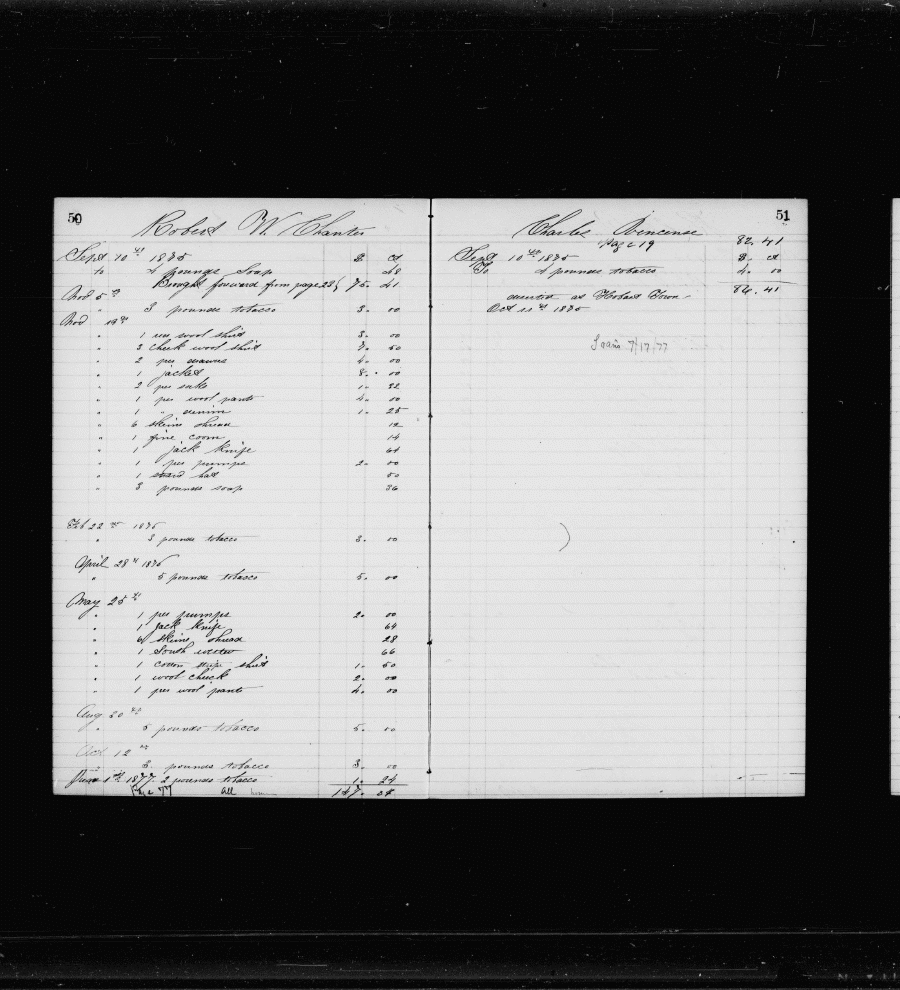 50
Robert W. Chanter
Sept 10th 1875 D. ct
to 4 pounds soap 48
Brought forward from page 28 75. 41
Nov 5th
" 3 pounds tobacco 3. 00
Nov 19th
" 1 wool shirt 3. 00
" 3 check wool shirt 7. 50
" 2 per drawers 4. 00
" 1 jacket 8. 00
" 2 per socks 1. 32
" 1 per wool pants 4. 00
" 1 " denim 1. 25
" 6 skeins thread 12
" 1 fine comb 14
" 1 jack knife 64
" 1 per pumps 2. 00
" 1 hat 50
" 3 pounds soap 36
Feb 22nd 1876
" 3 pounds tobacco 3. 00
April 28th 1876
" 5 pounds tobacco 5. 00
May 25th
" 1 per pumps 2. 00
" 1 jack knife 64
" 6 skeins thread 28
" 1 South wester 66
" 1 cotton stripe shirt 1. 50
" 1 wool check 2. 00
" 1 per wool pants 4. 00
Aug 20th
" 5 pounds tobacco 5. 00
Oct 12th
" 3 pounds tobacco 3. 00
1st 1877. 2 pounds tobacco 1. 24
Page 77 all 147. 04
51
Charles
Page 19 82. 41
Sept 10th 1875 D. ct
To 4 pounds tobacco 4. 00
86. 41
deserted at Hobart Town
Oct 11th 1875
7/17/77